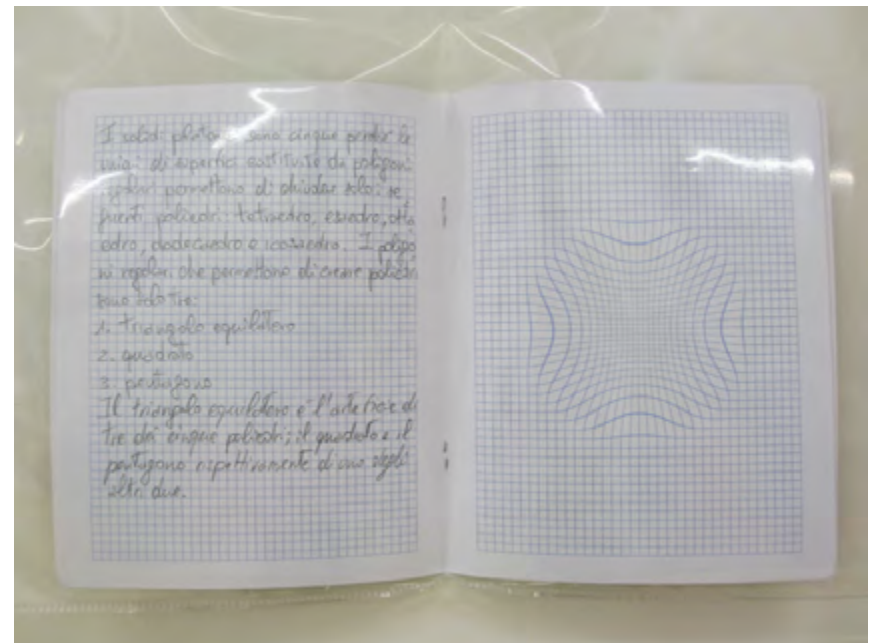 I solidi platonici sono cinque perché le
di superfici costituite da poligoni
regolari permettono di chiudere solo i se
guenti poliedri: tetraedro, esaedro, otta
edro, dodecaedro e icosaedro. I poligo
ni regolari che permettono di creare poliedri
sono solo tre:
1. triangolo equilatero
2. quadrato
3. pentagono
Il triangolo equilatero è di
tre dei cinque poliedri; il quadrato e il
pentagono rispettivamente di uno degli
altri due.